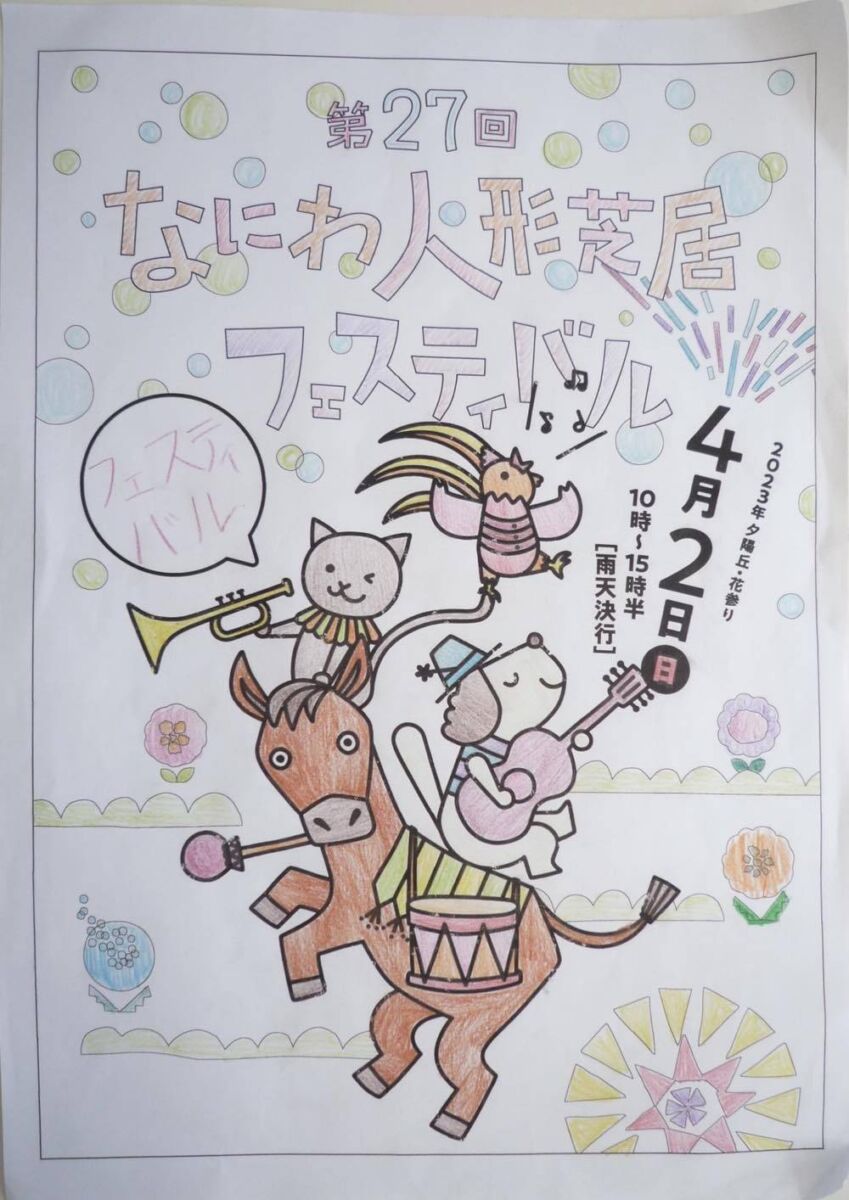 第27回
なにわ人形芝居
フェスティバル
フェスティ
バル
2023年 夕陽丘・花参り
4月2日(日)
10時~15時半
[雨天決行]